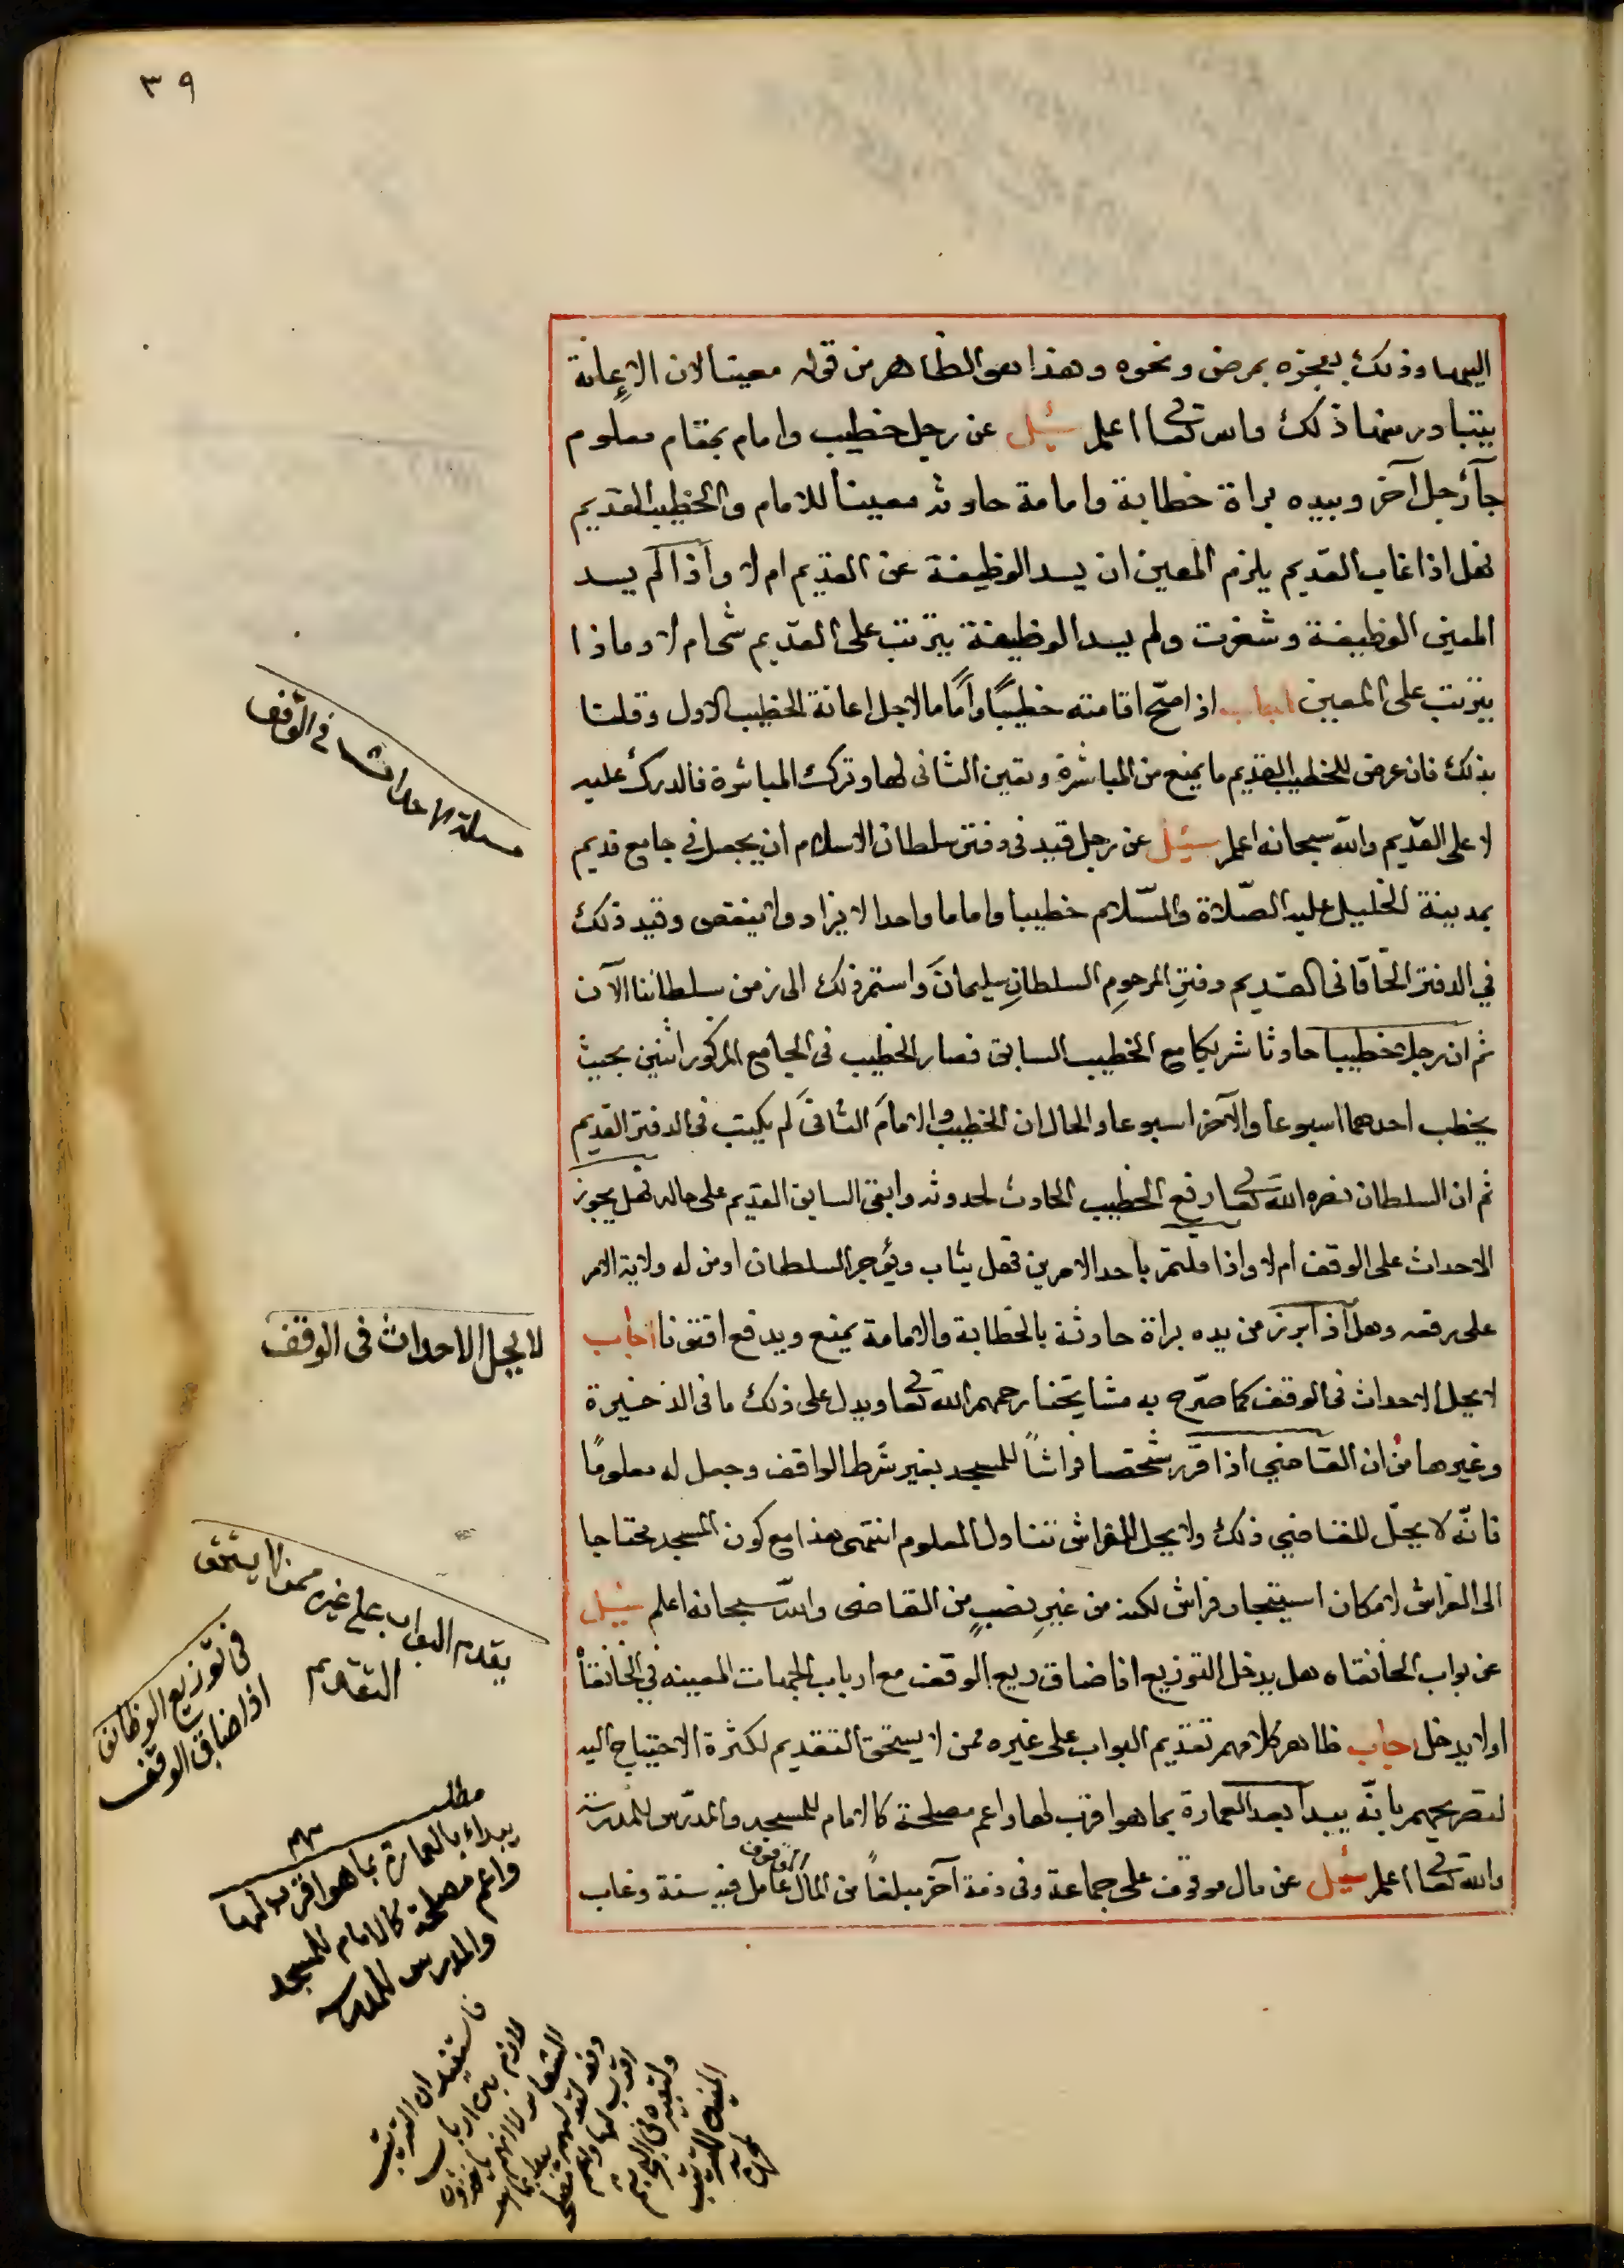 ٣٩
اليهما وذلك بعجزه بمرض ونحوه وهذا هو الظاهر من قوله معينا لان الاعانة
يتبادر منها ذلك والله تعالى اعلم سئل عن رجل خطيب وامام بمقام معلوم
جآ رجل آخر وبيده براة خطابة وامامة حادثه معينا للامام والخطيب القديم
فهل اذا غاب القديم يلزم المعين ان يسد الوظيفة عن القديم ام لا واذا لم يسد
المعين الوظيفة وشغرت ولم يسد الوظيفة يترتب على القديم شئ ام لا وماذا
يترتب على المعين اجاب اذا صح اقامته خطيبًا وامامًا لاجل اعانة الخطيب الاول وقلنا
بذلك فان عرض للخطيب القديم ما يمنع من المباشرة وتعين الثاني لها وترك المباشرة فالدرك عليه
لا على القديم والله سبحانه اعلم سئيل عن رجل قيد في دفتر سلطان الاسلام ان يجعل في جامع قديم
بمدينة الخليل عليه الصّلاة والسّلام خطيبا واماما واحدا لا يزاد ولا ينقص وقيد ذلك
في الدفتر الخاقاني القديم دفترِ المرحومِ السلطانِ سليمانَ واستمر ذلك الى زمن سلطاننا الآن
ثم ان رجلا خطيبا حادثا شريكا مع الخطيب السابق فصار الخطيب في الجامع المذكور اثنين بحيث
يخطب احدهما اسبوعا والآخر اسبوعا والحال ان الخطيب والامامَ الثانيَ لم يكتب في الدفتر القديم
ثم ان السلطان نصره الله تعالى رفع الخطيب الحادث لحدوثه وابقى السابق القديم على حاله فهل يجوز
الاحداث على الوقف ام لا واذا قلتم باحد الامرين فهل يثاب ويؤجر السلطان او من له ولاية الامر
على رفعه وهل اذا ابرز من يده براة حادثة بالخطابة والامامة يمنع ويدفع افتونا اجاب
لا يحل الاحداث في الوقف كما صرّح به مشايخنا رحمهم الله تعالى ويدل على ذلك ما في الذخيرة
وغيرها من ان القاضي اذا قرر شخصا فراشًا للمسجد بغير شرط الواقف وجعل له معلومًا
فانّه لا يحلّ للقاضي ذلك ولا يحل للفراش تناول المعلوم انتهى هذا مع كون المسجد محتاجا
الى الفراش لامكان استيجار فراش لكنه من غيرِ نصبٍ من القاضي والله سبحانه اعلم سئيل
عن بواب الخانقاه هل يدخل التوزيع اذا ضاق ريع الوقف مع ارباب الجهات المعينه في الخانقاه
اولا يدخل اجاب ظاهر كلامهم تقديم البواب على غيره ممن لا يستحق التقديم لكثرة الاحتياج اليه
لتصريحهم بانّه يبدا بعد العمارة بما هو اقرب لها واعم مصلحة كالامام للمسجد والمدرّس للمدرسة
والله تعالى اعلم سئيل عن مال موقوف على جماعة وفي ذمة آخر مبلغاً من المال الموقوف عامل فيه سنة وغاب
مسئلة الاحداث في الوقف
لا يحل الاحداث في الوقف
يقدم البواب على غيره ممن لا يستحق
التقديم
في توزيع الوظائف
اذا ضاق الوقف
مطلب
مهم
يبداء بالعمارة بما هو اقرب لها
واعم مصلحة كالامام للمسجد
والمدرس للمدرسة
فاستفيد ان الترتيب
لازم بين ارباب